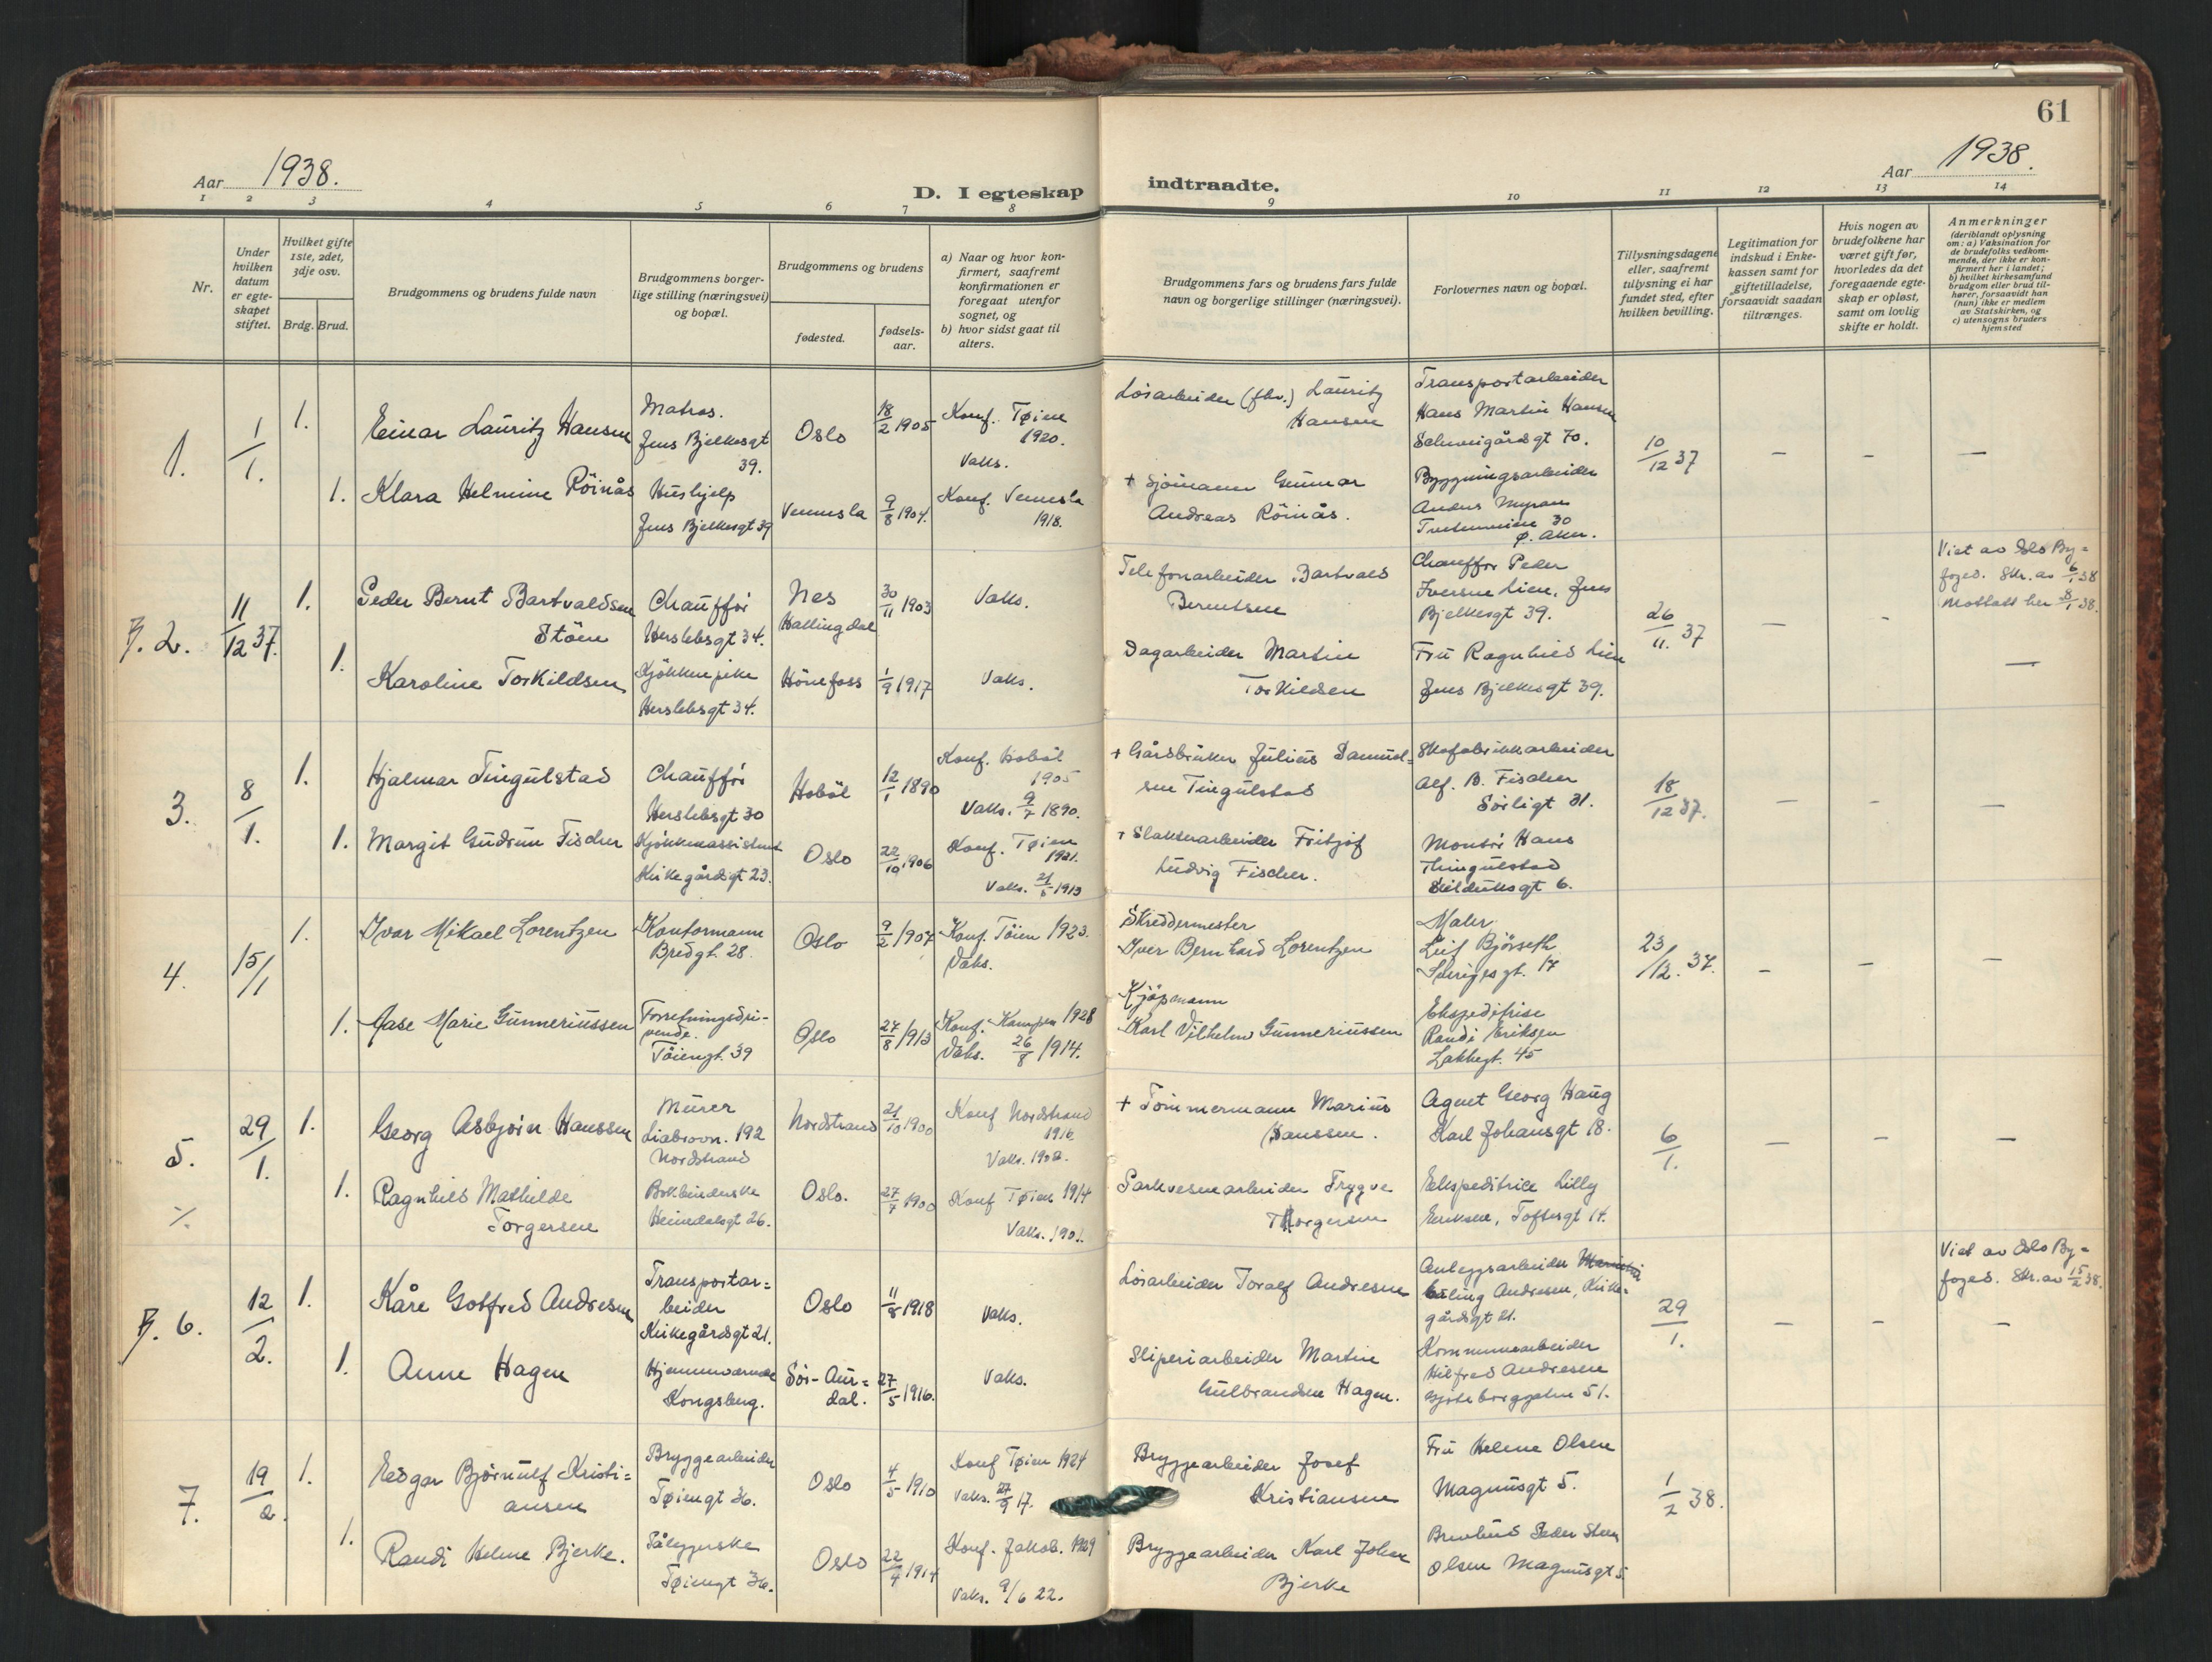 61
Aar 1938.
D. I egteskap indtraadte.
Aar 1938.
1 2 3 4 5 6 7 8 9 10 11 12 13 14
Nr.
Under hvilken datum er egteskapet stiftet.
Hvilket gifte 1ste, 2det, 3dje osv.
Brdg. Brud.
Brudgommens og brudens fulde navn
Brudgommens borgerlige stilling (næringsvei) og bopæl.
Brudgommens og brudens
fødested.
fødselsaar.
a) Naar og hvor konfirmert, saafremt konfirmationen er foregaat utenfor sognet, og
b) hvor sidst gaat til alters.
Brudgommens fars og brudens fars fulde navn og borgerlige stillinger (næringsvei).
Forlovernes navn og bopæl.
Tillysningsdagene eller, saafremt tillysning ei har fundet sted, efter hvilken bevilling.
Legitimation for indskud i Enkekassen samt for giftetilladelse, forsaavidt saadan tiltrænges.
Hvis nogen av brudefolkene har været gift før, hvorledes da det foregaaende egteskap er opløst, samt om lovlig skifte er holdt.
Anmerkninger
(deriblandt oplysning om: a) Vaksination for de brudefolks vedkommende, der ikke er konfirmert her i landet; b) hvilket kirkesamfund brudgom eller brud tilhører, forsaavidt han (hun) ikke er medlem av Statskirken, og c) utensogns bruders hjemsted
1. 1/1. 1. Einar Lauritz Hansen
Matros.
Jens Bjelkesgt
39.
Oslo 18/2 1905
Konf. Tøien
1920.
Vaks.
Løsarbeider (fhv.) Lauritz
Hansen
Transportarbeider
Hans Martin Hansen
Schweigårdsgt 70.
10/12 37 – – –
1. Klara Helmine Röinås
Hushjelp
Jens Bjelkesgt 39
Vennesla 9/8 1904.
Konf. Vennesla
1918.
+ Sjömann Gunnar
Andreas Röinås.
Bygningsarbeider
Anders Myran
30
Ø. Aker.
B. 2. 11/12 37. 1. Peder Bernt Bartvaldsen
Stöen
Chauffør
Herslebsgt 34.
Nes
Hallingdal
30/11 1903
Vaks.
Telefonarbeider Bartvald
Berentsen
Chauffør Peder
Iversen Lien, Jens
Bjelkesgt 39.
26/11. 37 – –
Viet av Oslo By=
foged. Skr. av 6/1 38
Mottatt her 8/1 38.
1. Karoline Torkildsen
Kjökkenpike
Herslebsgt 34.
Hönefoss 1/9 1917
Vaks.
Dagarbeider Martin
Torkildsen
Fru Ragnhild Lien
Jens Bjelkesgt 39.
–
3. 8/1. 1. Hjalmar Tingulstad
Chauffør
Herslebsgt 30
Hobøl 12/1 1890
Konf. Hobøl
1905
Vaks. 9/7 1890.
+ Gårdbruker Julius Samuel=
sen Tingulstad
Skofabrikkarbeider
Alf. B. Fischer
Sörligt 31.
18/12 37. – – –
1. Margit Gudrun Fischer
Kjökkenassistent
Kirkegårdsgt 23.
Oslo 22/10 1906
Konf. Tøien
1921.
Vaks. 21/5 1913
+ Slakterarbeider Fritjof
Ludvig Fischer.
Montör Hans
Thingulstad
Seilduksgt 6.
4. 15/1 1. Ivar Mikael Lorentzen
Kontormann
Bredgt. 28.
Oslo 9/2 1907
Konf. Töien 1923.
Vaks.
Skreddermester
Iver Bernhard Lorentzen
Maler
Leif Bjørseth
Schwigsgt. 17
23/12. 37. – – –
1. Aase Marie Gunneriussen
Forretningsdri-
vende.
Töiengt. 39
Oslo 27/8 1913
Konf. Kampen 1928
Vaks. 26/8 1914.
Kjöpmann
Karl Vilhelm Gunneriussen
Ekspeditrise
Randi Eriksen
Lakkegt. 45
5. 29/1. 1. Georg Asbjørn Hanssen
Murer
Liabrovn. 192
Nordstrand
Nordstrand 21/10 1900
Konf Nordstrand
1916.
Vaks. 1902.
+ Tömmermann Marius
Hanssen.
Agent Georg Haug
Karl Johansgt 18.
6/1. – – –
%. 1. Ragnhild Mathilde
Torgersen
Bokbinderske
Heimdalsgt 26.
Oslo. 27/7 1900
Konf Tøien 1914
Vaks. 1901.
Parkvesenarbeider Trygve
Thorgersen
Ekspeditrice Lilly
Eriksen, Toftesgt 14.
B. 6. 12/2. 1. Kåre Gotfred Andresen
Transportar=
beider
Kirkegårdsgt 21.
Oslo 11/8 1918
Vaks.
Løsarbeider Toralf Andresen
Anleggsarbeider
Erling Andresen, Kirke=
gårdsgt 21.
29/1. – – –
Viet av Oslo By=
foged. Skr. av 15/2 38.
1. Anne Hagen
Hjemmeværende
Kongsberg.
Sör-Aur=
dal.
27/5 1916.
Vaks.
Sliperiarbeider Martin
Gulbrandsen Hagen.
Kommunearbeider
Hilfred Andresen
Gjøteborggaten 51.
7. 19/2. 1. Edgar Bjørnulf Kristi=
ansen
Bryggearbeider
Tøiengt 36.
Oslo 4/5 1910
Konf Tøien 1924
Vaks. 27/9 17.
Bryggearbeider Josef
Kristiansen
Fru Helene Olsen
Magnusgt 5.
1/2 38.
1. Randi Helene Bjerke.
Påleggerske
Tøiengt 36.
Oslo 22/4 1914
Konf. Jakob. 1929
Vaks. 9/6 22.
Bryggearbeider Karl Johan
Bjerke
Peder Steen
Olsen Magnusgt 5